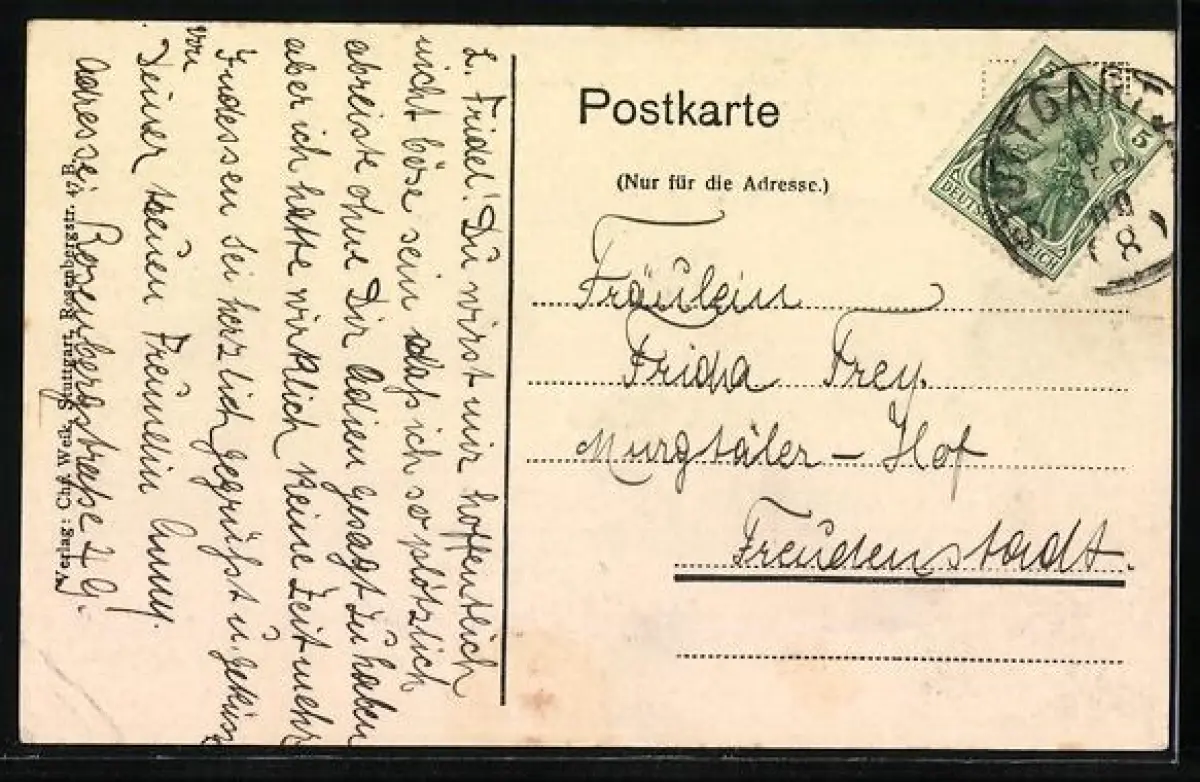 Postkarte
(Nur für die Adresse.)
Fräulein
Frida Frey.
Murgtäler - Hof
Freudenstadt.
L. Fridel! Du wirst mir hoffentlich
nicht böse sein daß ich so plötzlich
abreiste ohne Dir Adieu gesagt zu haben
aber ich hatte wirklich keine Zeit mehr
Indessen sei herzlich gegrüßt u. geküßt
von
Deiner treuen Freundin Anny.
Adresse: Rosenbergstraße
Verlag: Chr. Weik, Stuttgart, Rosenbergstr. 49 B.
STUTTGART
5
DEUTSCHES REICH